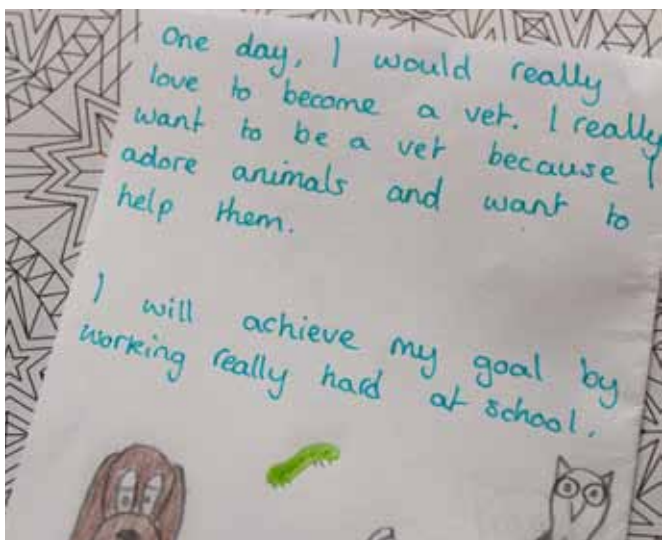 One day, I would really
love to become a vet. I really
want to be a vet because I
adore animals and want to
help them.
I will achieve my goal by
working really hard at school.